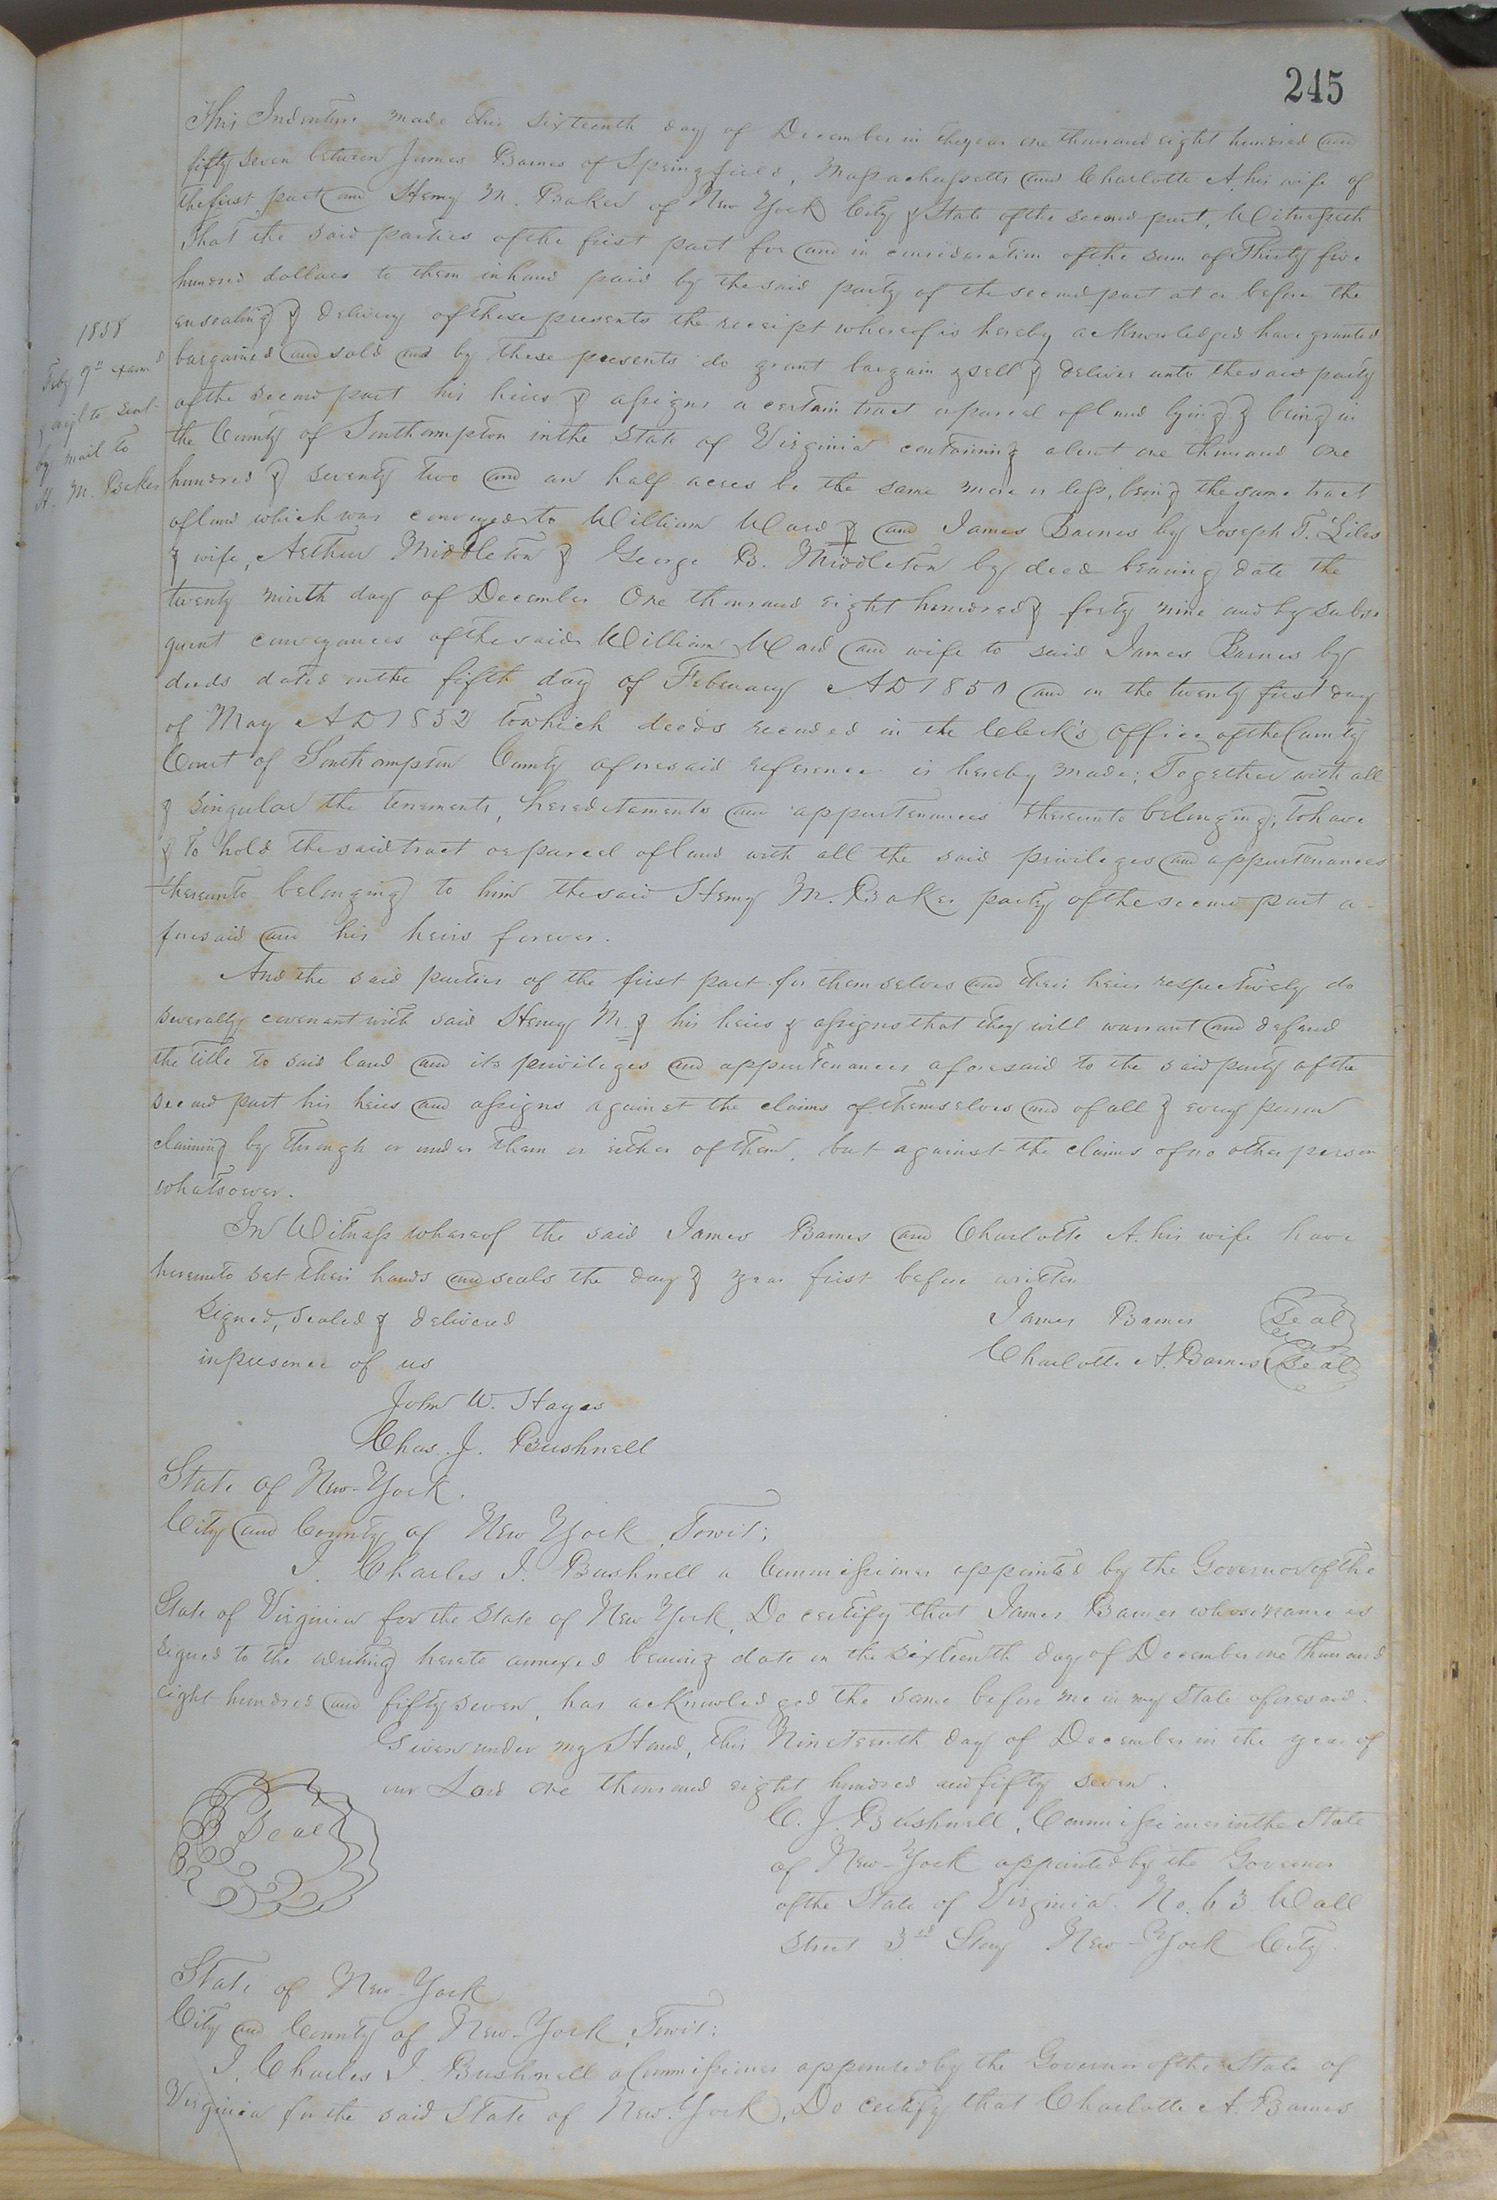 245
This Indenture made this sixteenth day of December in the year one thousand eight hundred and
fifty seven between James Barnes of Springfield, Massachusetts and Charlotte A. his wife of
the first part and Henry M. Baker of New York City & State of the second part, Witnesseth
That the said parties of the first part for and in consideration of the sum of Thirty five
hundred dollars to them in hand paid by the said party of the second part at or before the
ensealing & delivery of these presents the receipt whereof is hereby acknowledged have granted
bargained and sold and by these presents do grant bargain & sell & deliver unto the said party
of the second part his heirs & assigns a certain tract or parcel of land lying & being in
the County of Southampton in the State of Virginia containing about one thousand one
hundred & seventy two and an half acres be the same more or less, being the same tract
of land which was conveyed to William Ward & and James Barnes by Joseph T. Liles
& wife, Arthur Middleton & George B. Middleton by deed bearing date the
twenty ninth day of December One thousand eight hundred & forty nine and by subse
quent conveyances of the said William Ward and wife to said James Barnes by
deeds dated on the fifth day of February AD 1850 and on the twenty first day
of May AD 1852 to which deeds recorded in the Clerk's office of the County
Court of Southampton County aforesaid reference is hereby made; Together with all
& singular the tenements, hereditaments and appurtenances thereunto belonging; to have
& to hold the said tract or parcel of land with all the said privileges and appurtenances
thereunto belonging to him the said Henry M. Baker party of the second part a-
foresaid and his heirs forever.
And the said parties of the first part for themselves and their heirs respectively do
severally covenant with said Henry M. & his heirs & assigns that they will warrant and defend
the title to said land and its privileges and appurtenances aforesaid to the said party of the
second part his heirs and assigns against the claims of themselves and of all & every person
claiming by through or under them or either of them, but against the claims of no other person
whatsoever.
In Witness whereof the said James Barnes and Charlotte A. his wife have
hereunto set their hands and seals the day & year first before written
Signed, sealed & delivered James Barnes Seal
in presence of us Charlotte A. Barnes Seal
John W. Hayes
Chas. J. Bushnell
1858
Feby 9th exam'd
by mail to
H. M. Baker
State of New-York.
City and County of New York, Towit;
I. Charles J. Bushnell a Commissioner appointed by the Governor of the
State of Virginia for the State of New York, Do certify that James Barnes whose name is
signed to the writing hereto annexed bearing date on the sixteenth day of December one thousand
eight hundred and fifty seven, has acknowledged the same before me in my State aforesaid.
Given under my Hand, this Nineteenth day of December in the year of
our Lord one thousand eight hundred and fifty seven.
Seal
C. J. Bushnell, Commissioner in the State
of New-York appointed by the Governor
of the State of Virginia. No. 63 Wall
Street 3rd Story New-York City.
State of New-York
City and County of New-York, Towit;
I, Charles J. Bushnell a Commissioner appointed by the Governor of the State of
Virginia for the said State of New-York, Do certify that Charlotte A. Barnes